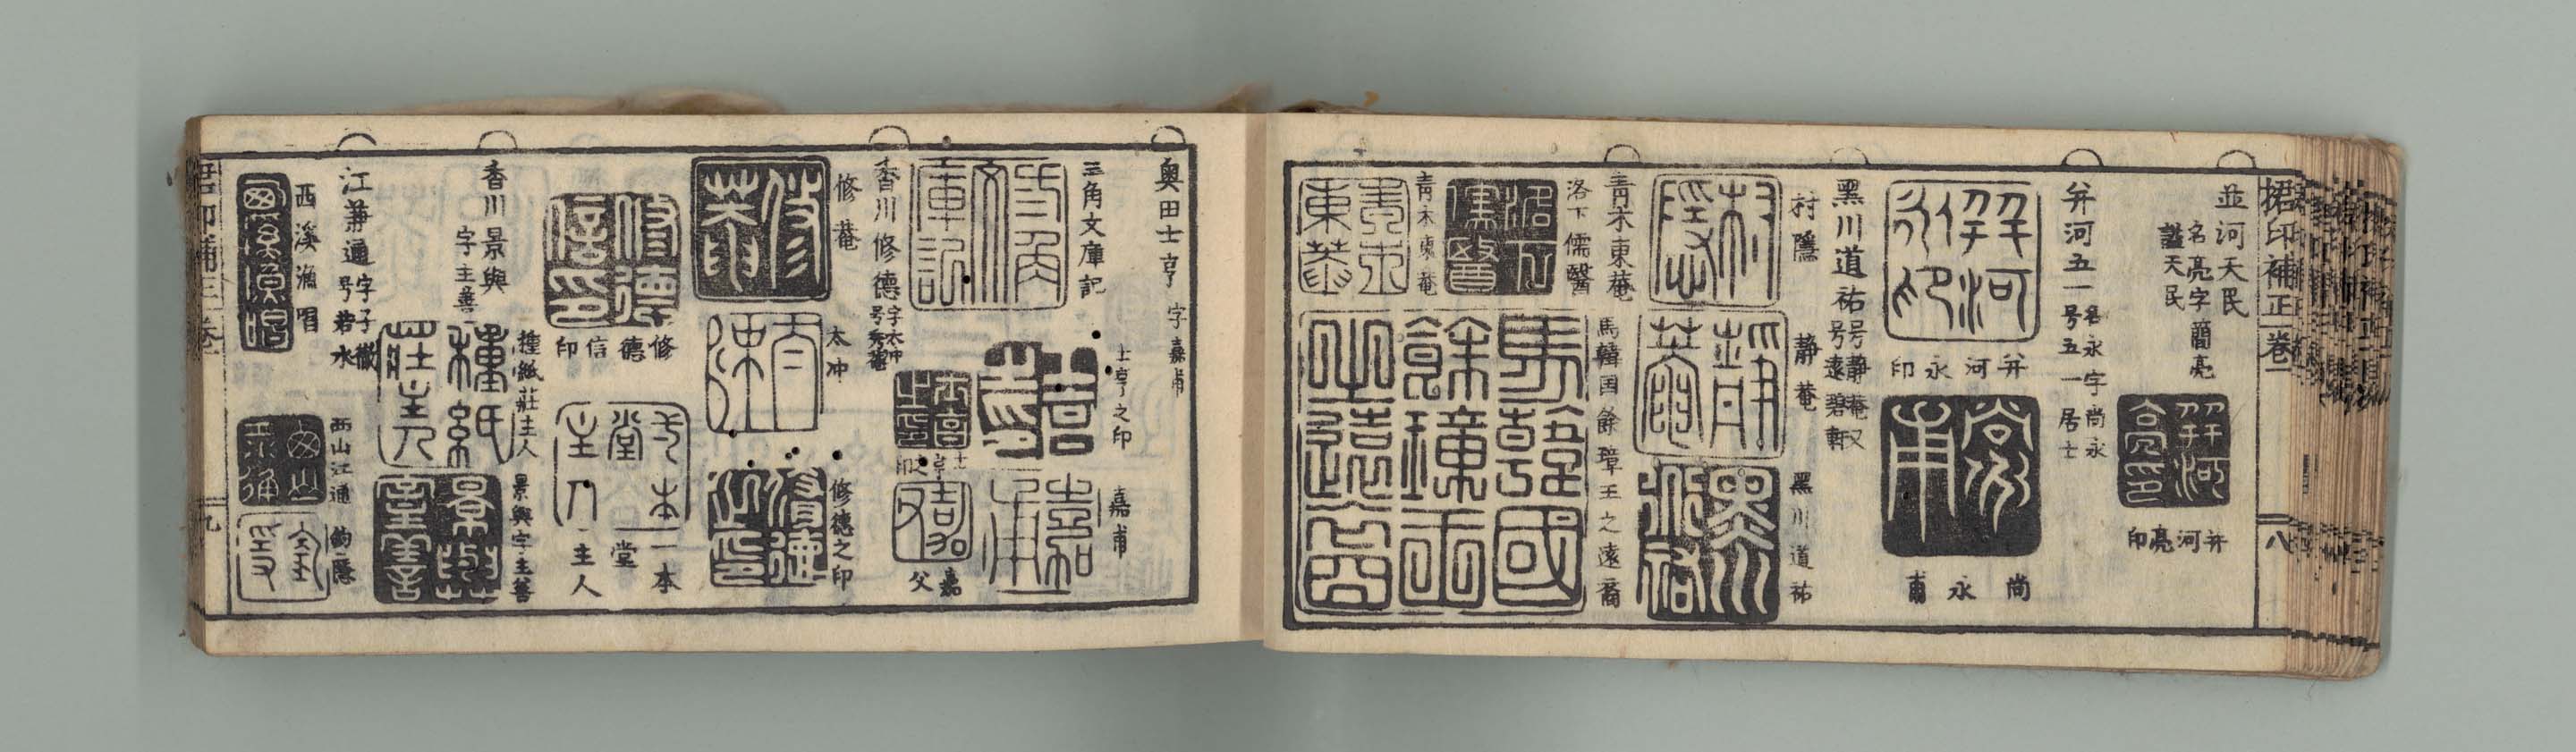 捃印補正 卷一
八
並河天民
名亮字簡亮
謚天民
并河亮印
并河五一
名永字尚永
号五一居士
并河永印
尚永甫
黑川道祐
号静菴又
号遠碧軒
村隱
静菴
黑川道祐
青木東菴
洛下儒醫
馬韓国餘璋王之遠裔
青木東菴
奥田士亨
字嘉甫
三角文庫記
士亨之印
嘉甫
士亨之印
嘉父
香川修德
字太冲
号秀菴
修菴
太冲
修德之印
修德信印
一本堂主人
香川景與
字主善
種紙莊主人
景與字主善
江兼通
字子徹
号若水
西溪漁唱
西山江通
釣隱
九